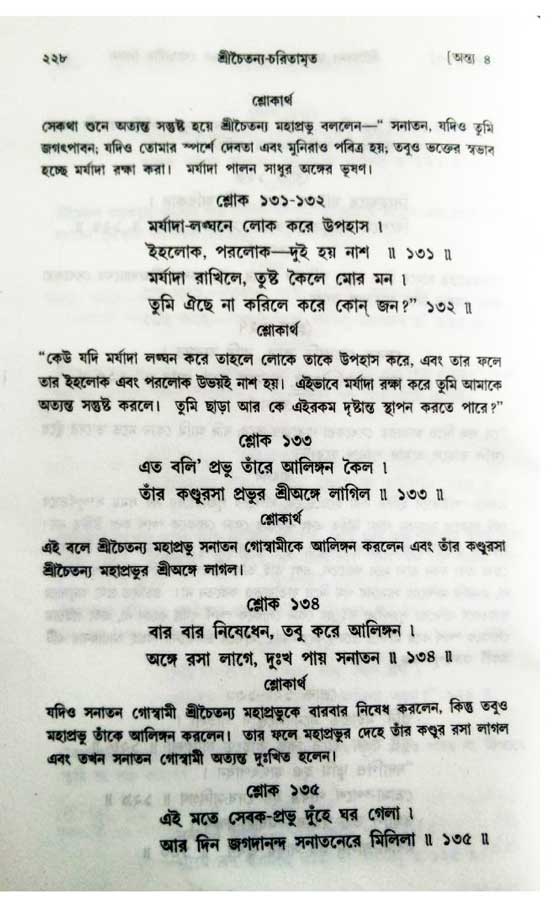 ২২৮ শ্রীচৈতন্য-চরিতামৃত [অন্ত্য ৪
শ্লোকার্থ
সেকথা শুনে অত্যন্ত সন্তুষ্ট হয়ে শ্রীচৈতন্য মহাপ্রভু বললেন—" সনাতন, যদিও তুমি
জগৎপাবন; যদিও তোমার স্পর্শে দেবতা এবং মুনিরাও পবিত্র হয়; তবুও ভক্তের স্বভাব
হচ্ছে মর্যাদা রক্ষা করা। মর্যাদা পালন সাধুর অঙ্গের ভূষণ।
শ্লোক ১৩১-১৩২
মর্যাদা-লঙ্ঘনে লোক করে উপহাস ।
ইহলোক, পরলোক—দুই হয় নাশ ॥ ১৩১ ॥
মর্যাদা রাখিলে, তুষ্ট কৈলে মোর মন ।
তুমি ঐছে না করিলে করে কোন্ জন?" ১৩২ ॥
শ্লোকার্থ
"কেউ যদি মর্যাদা লঙ্ঘন করে তাহলে লোকে তাকে উপহাস করে, এবং তার ফলে
তার ইহলোক এবং পরলোক উভয়ই নাশ হয়। এইভাবে মর্যাদা রক্ষা করে তুমি আমাকে
অত্যন্ত সন্তুষ্ট করলে। তুমি ছাড়া আর কে এইরকম দৃষ্টান্ত স্থাপন করতে পারে?"
শ্লোক ১৩৩
এত বলি' প্রভু তাঁরে আলিঙ্গন কৈল ।
তাঁর কণ্ডুরসা প্রভুর শ্রীঅঙ্গে লাগিল ॥ ১৩৩ ॥
শ্লোকার্থ
এই বলে শ্রীচৈতন্য মহাপ্রভু সনাতন গোস্বামীকে আলিঙ্গন করলেন এবং তাঁর কণ্ডুরসা
শ্রীচৈতন্য মহাপ্রভুর শ্রীঅঙ্গে লাগল।
শ্লোক ১৩৪
বার বার নিষেধেন, তবু করে আলিঙ্গন ।
অঙ্গে রসা লাগে, দুঃখ পায় সনাতন ॥ ১৩৪ ॥
শ্লোকার্থ
যদিও সনাতন গোস্বামী শ্রীচৈতন্য মহাপ্রভুকে বারবার নিষেধ করলেন, কিন্তু তবুও
মহাপ্রভু তাঁকে আলিঙ্গন করলেন। তার ফলে মহাপ্রভুর দেহে তাঁর কণ্ডুর রসা লাগল
এবং তখন সনাতন গোস্বামী অত্যন্ত দুঃখিত হলেন।
শ্লোক ১৩৫
এই মতে সেবক-প্রভু দুঁহে ঘর গেলা ।
আর দিন জগদানন্দ সনাতনেরে মিলিলা ॥ ১৩৫ ॥